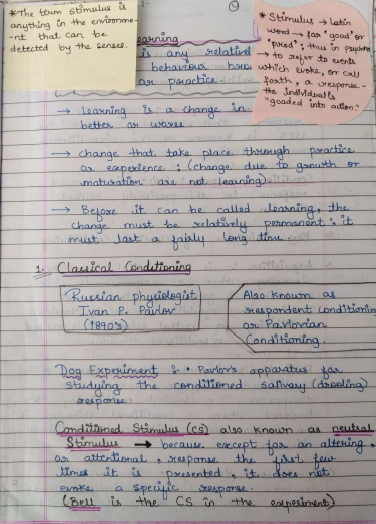 *The term stimulus is
anything in the environme-
-nt that can be
detected by the senses.
4
*Stimulus → Latin
word → for "goad" or
"prod"; thus in
→ to refer to events
which evoke, or call
forth, a response -
the individual is
"goaded into action."
Learning
is any relatively
behaviour
or practice.
→ Learning is a change in
better or worse.
→ change that take place through practice
or experience; (change due to growth or
maturation are not learning)
→ Before it can be called learning, the
change must be relatively permanent; it
must last a fairly long time.
1. Classical Conditioning
Russian physiologist
Ivan P. Pavlov
(1890's)
Also known as
respondent conditioning
or Pavlovian
Conditioning.
Dog Experiment :- • Pavlov's apparatus for
studying the conditioned salivary (drooling)
response.
Conditioned Stimulus (CS) also known as neutral
Stimulus → because except for an altering,
or attentional, response the first few
times it is presented, it does not
evoke a specific response.
(Bell is the CS in the experiment)